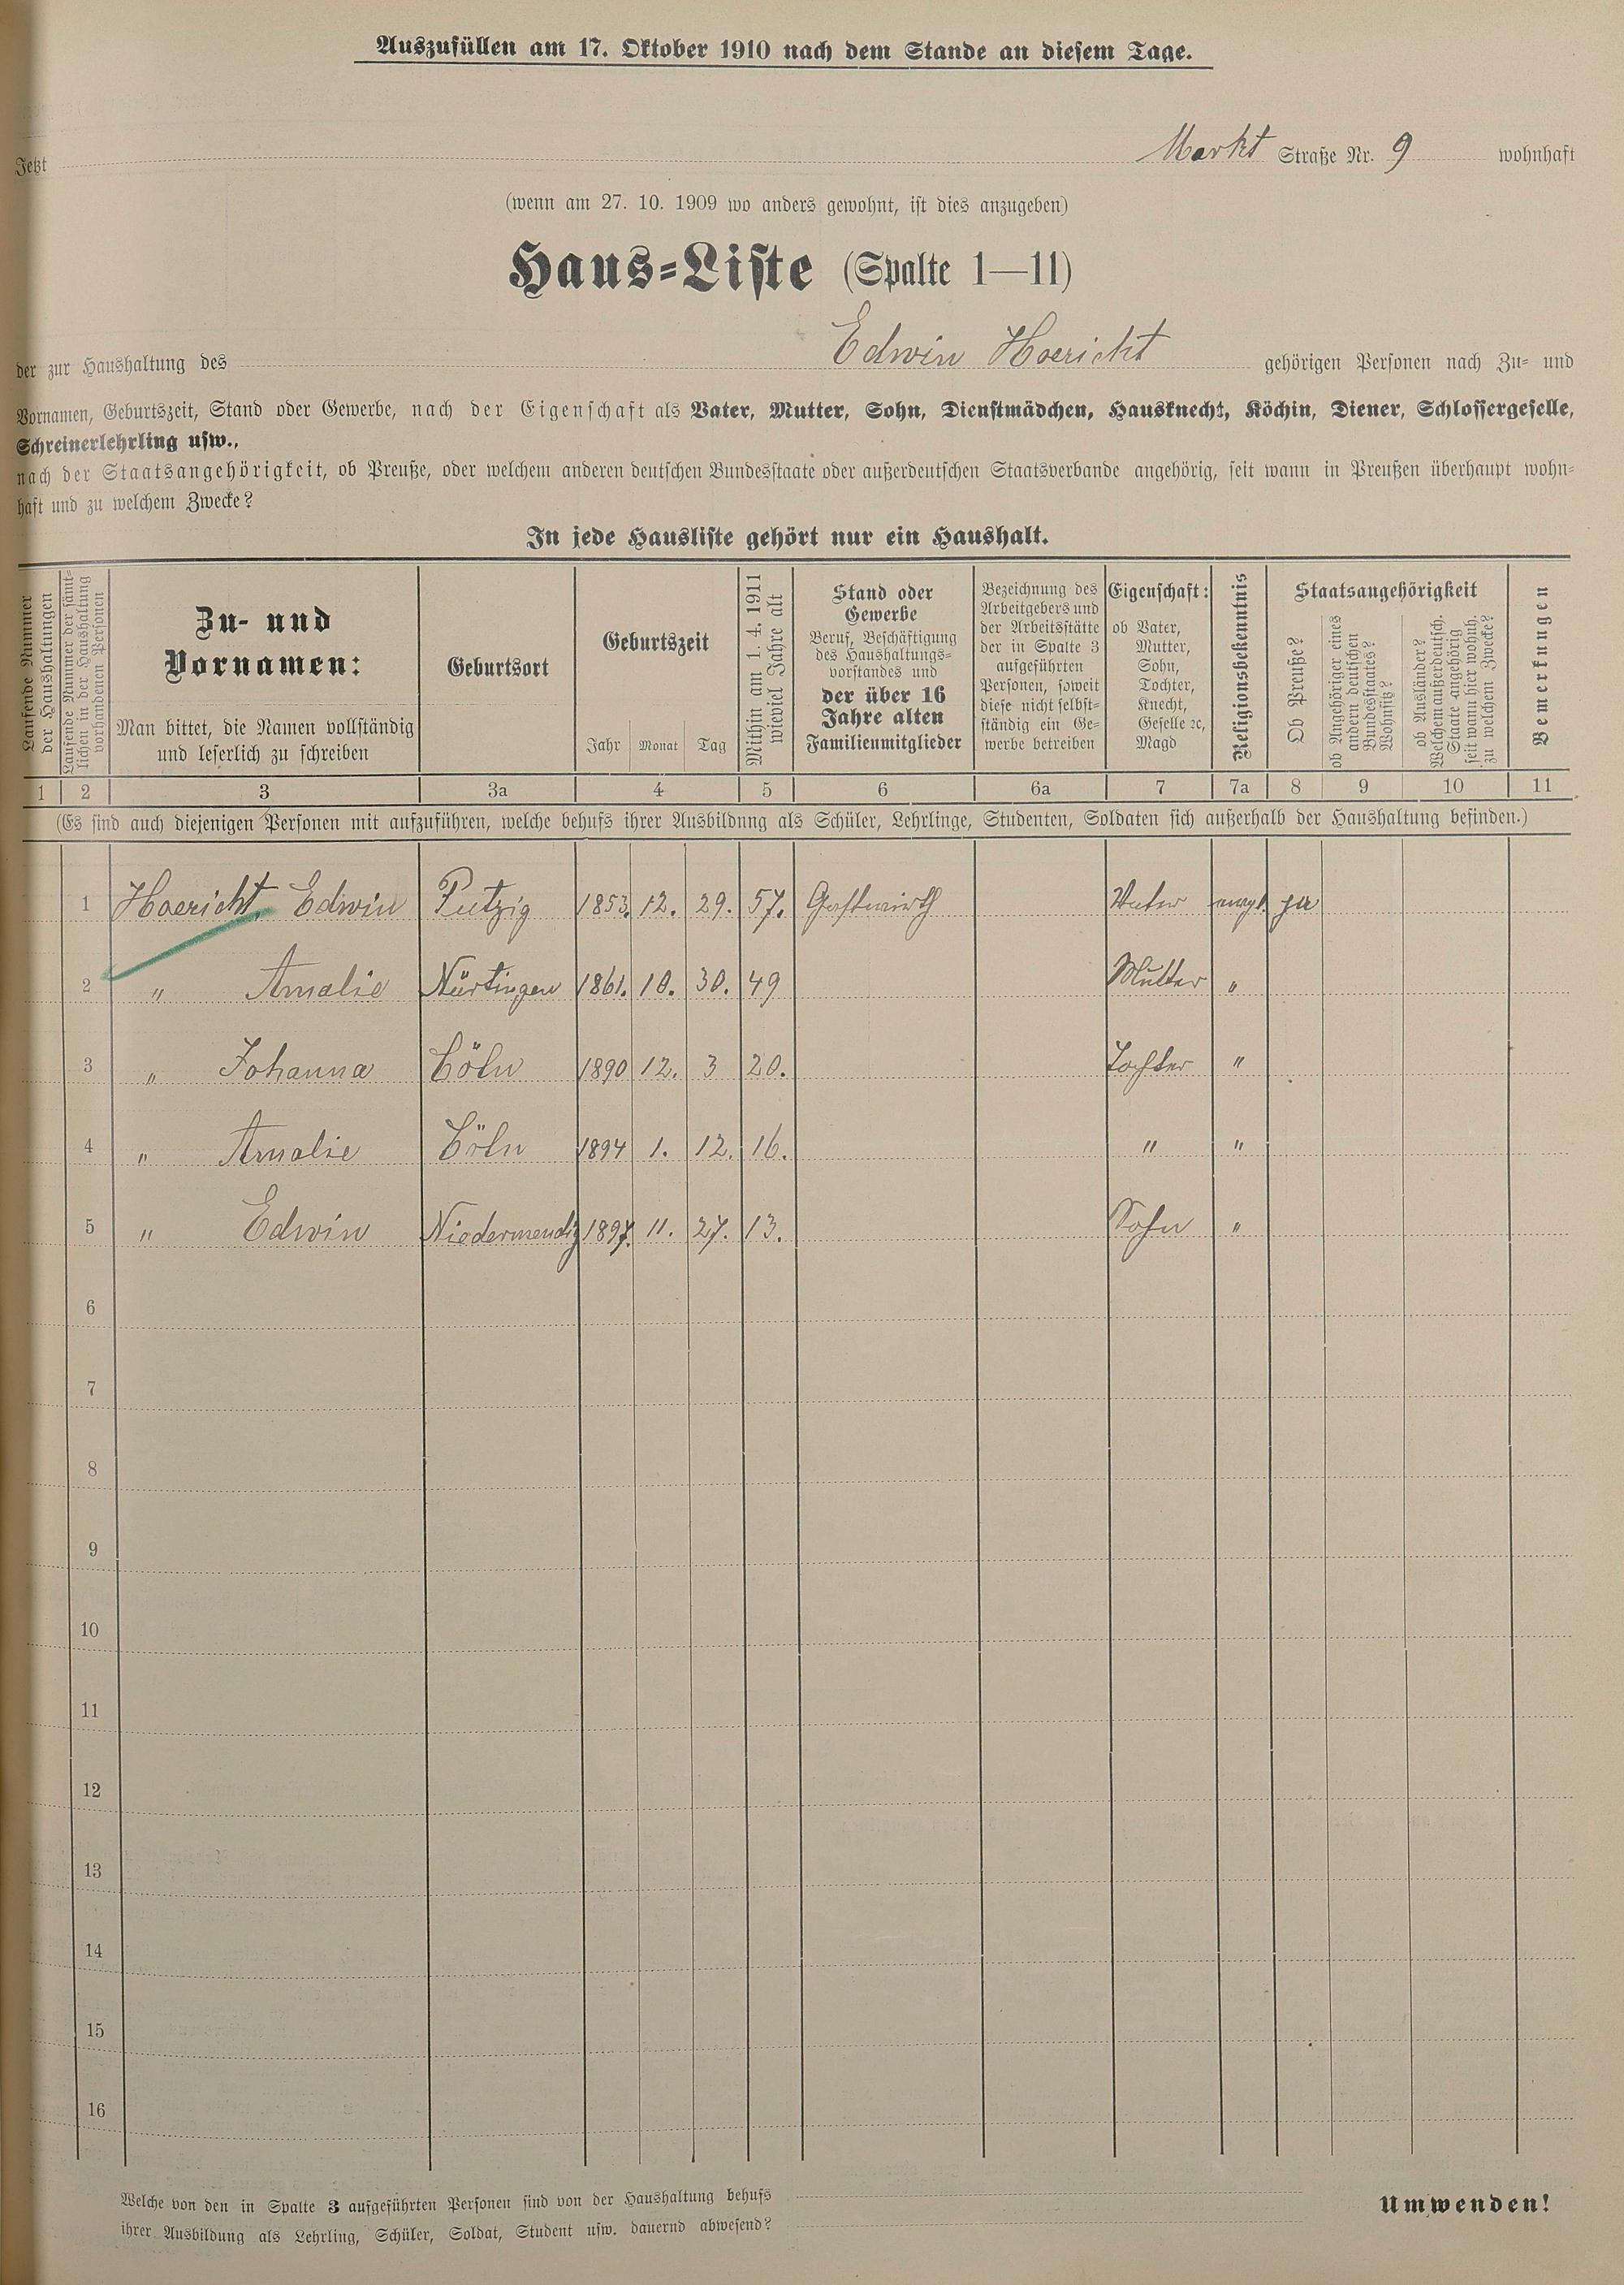 Auszufüllen am 17. Oktober 1910 nach dem Stande an diesem Tage.
Jetzt Markt Straße Nr. 9 wohnhaft
(wenn am 27. 10. 1909 wo anders gewohnt, ist dies anzugeben)
Haus-Liste (Spalte 1—11)
der zur Haushaltung des Edwin Hoericht gehörigen Personen nach Zu- und
Vornamen, Geburtszeit, Stand oder Gewerbe, nach der Eigenschaft als Vater, Mutter, Sohn, Dienstmädchen, Hausknecht, Köchin, Diener, Schlossergeselle,
Schreinerlehrling usw.,
nach der Staatsangehörigkeit, ob Preuße, oder welchem anderen deutschen Bundesstaate oder außerdeutschen Staatsverbande angehörig, seit wann in Preußen überhaupt wohn-
haft und zu welchem Zwecke?
In jede Hausliste gehört nur ein Haushalt.
Laufende Nummer
der Haushaltungen
Laufende Nummer der sämt-
lichen in der Haushaltung
vorhandenen Personen
Zu- und
Vornamen:
Man bittet, die Namen vollständig
und leserlich zu schreiben
Geburtsort
Geburtszeit
Jahr Monat Tag
Mithin am 1. 4. 1911
wieviel Jahre alt
Stand oder
Gewerbe
Beruf, Beschäftigung
des Haushaltungs-
vorstandes und
der über 16
Jahre alten
Familienmitglieder
Bezeichnung des
Arbeitgebers und
der Arbeitsstätte
der in Spalte 3
aufgeführten
Personen, soweit
diese nicht selbst-
ständig ein Ge-
werbe betreiben
Eigenschaft:
ob Vater,
Mutter,
Sohn,
Tochter,
Knecht,
Geselle ꝛc,
Magd
Religionsbekenntnis
Staatsangehörigkeit
Ob Preuße?
ob Angehöriger eines
andern deutschen
Bundesstaates?
Wohnsitz?
ob Ausländer?
Welchem außerdeutsch.
Staate angehörig
seit wann hier wohnh.
zu welchem Zwecke?
Bemerkungen
1 2 3 3a 4 5 6 6a 7 7a 8 9 10 11
(Es sind auch diejenigen Personen mit aufzuführen, welche behufs ihrer Ausbildung als Schüler, Lehrlinge, Studenten, Soldaten sich außerhalb der Haushaltung befinden.)
1 Hoericht, Edwin Putzig 1853. 12. 29. 57. Gastwirth Vater evgl. ja
2 " Amalie Nürtingen 1861. 10. 30. 49 Mutter "
3 " Johanna Cöln 1890 12. 3 20. Tochter "
4 " Amalie Cöln 1894 1. 12. 16. " "
5 " Edwin Niedermendig 1897. 11. 27. 13. Sohn "
6
7
8
9
10
11
12
13
14
15
16
Welche von den in Spalte 3 aufgeführten Personen sind von der Haushaltung behufs
ihrer Ausbildung als Lehrling, Schüler, Soldat, Student usw. dauernd abwesend?
Umwenden!